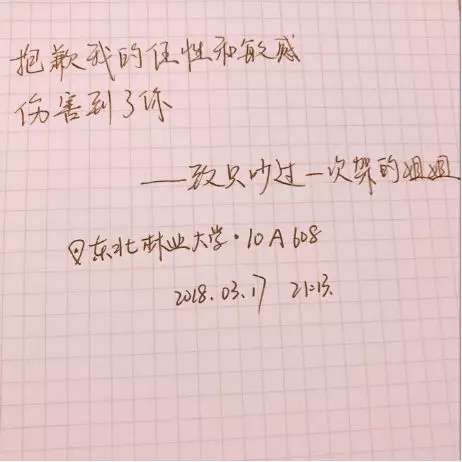 抱歉我的任性和敏感
伤害到了你
——致只吵过一次架的姐姐
东北林业大学·10A608
2018.03.17 21:13.